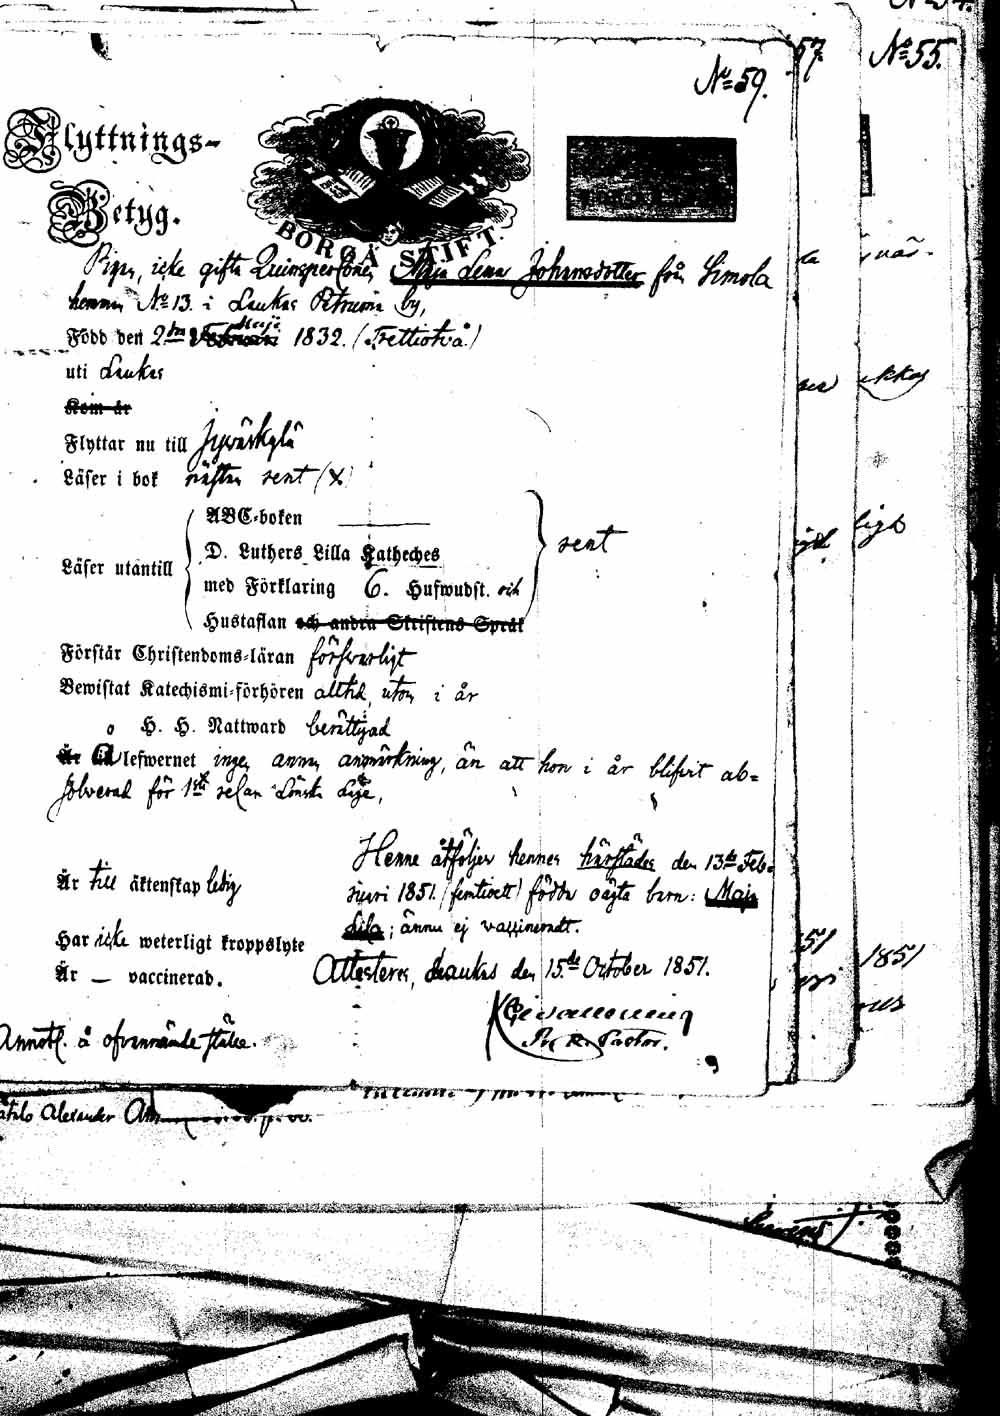 No 55.
57.
No 59.
Flyttnings-
Betyg.
BORGÅ STIFT.
Pigan, icke gifta Qvinspersonen Maja Lena Johansdotter från Simola
hemman No 13. i Laukas Petruma by,
Född den 2dra Februari Maji 1832. (Trettiotvå.)
uti Laukas
Kom år
Flyttar nu till Jyväskylä
Läser i bok nästan rent (X)
Läser utantill
ABC-boken
D. Luthers Lilla Katheches
med Förklaring 6. Hufwudst. och
Hustaflan och andra Skriftens Språk
rent
Förstår Christendoms-läran försvarligt
Bewistat Katechismi-förhören alltid, utom i år
H. H. Nattward berättigad
Är till lefwernet ingen annan anmärkning, än att hon i år blifvit ab-
solverad för 1sta resan Lönska Läge,
Är till äktenskap ledig
Har icke weterligt kroppslyte
Är — vaccinerad.
Henne åtföljer hennes härstädes den 13de Feb-
ruari 1851. (femtioett) födda oägta barn: Maja
; ännu ej vaccineradt.
Attesteras, Laukas den 15de October 1851.
Pastor.
Annotl. å ofvannämde ställe.
1851
Alexander